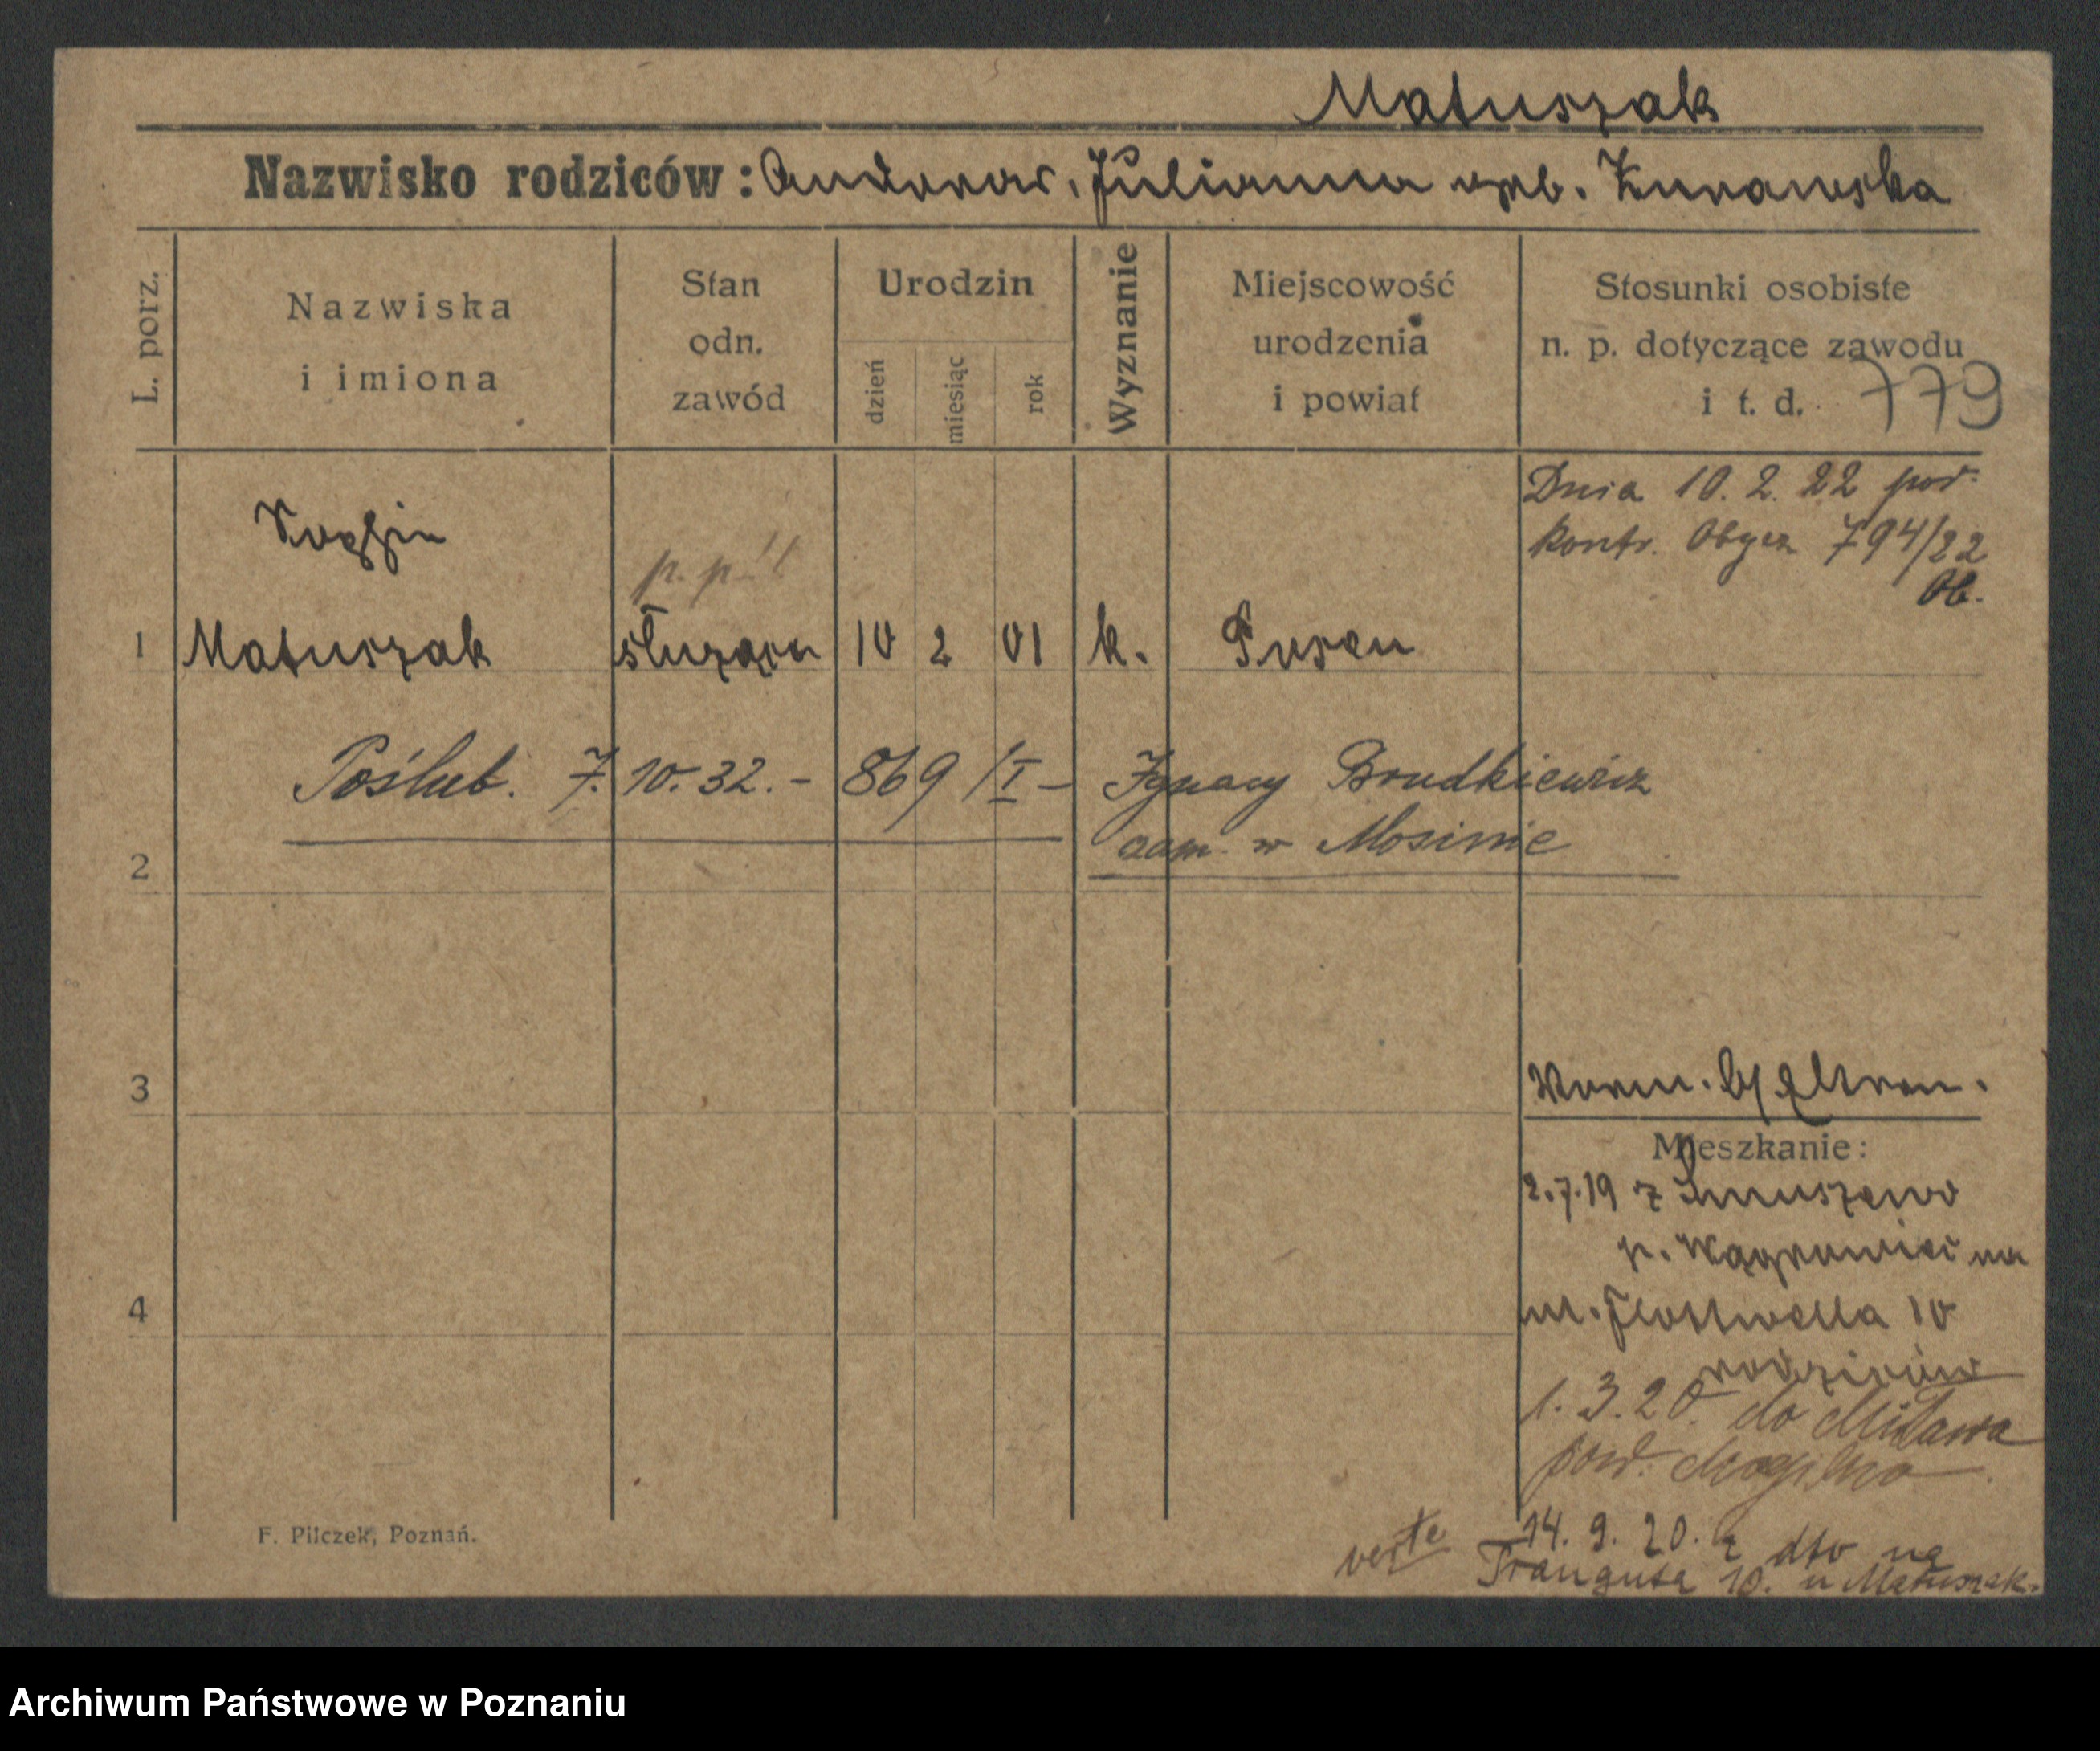 Matuszak
Nazwisko rodziców: Andrzej. Julianna Żurawska
L. porz.
Nazwiska
i imiona
Stan
odn.
zawód
Urodzin
dzień
miesiąc
rok
Wyznanie
Miejscowość
urodzenia
i powiat
Stosunki osobiste
n. p. dotyczące zawodu
i t. d.
779
Dnia 10. 2. 22 pod
kontr. Obycz 794/22
p. p. !!
1 Matuszak służąca 10 2 01 k. Posen
Poślub. 7. 10. 32. - 869 /I - Ignacy Brudkiewicz
zam. w Mosinie
2
3
Mieszkanie:
2.7.19 z
p. Wągrowiec na
4
ul. Flottwella 10
rodziców
1. 3. 20. do Mława
pow. Mogilno
verte
14. 9. 20. z dto na
Traugutta 10. u Matuszak.
F. Pilczek, Poznań.
Archiwum Państwowe w Poznaniu